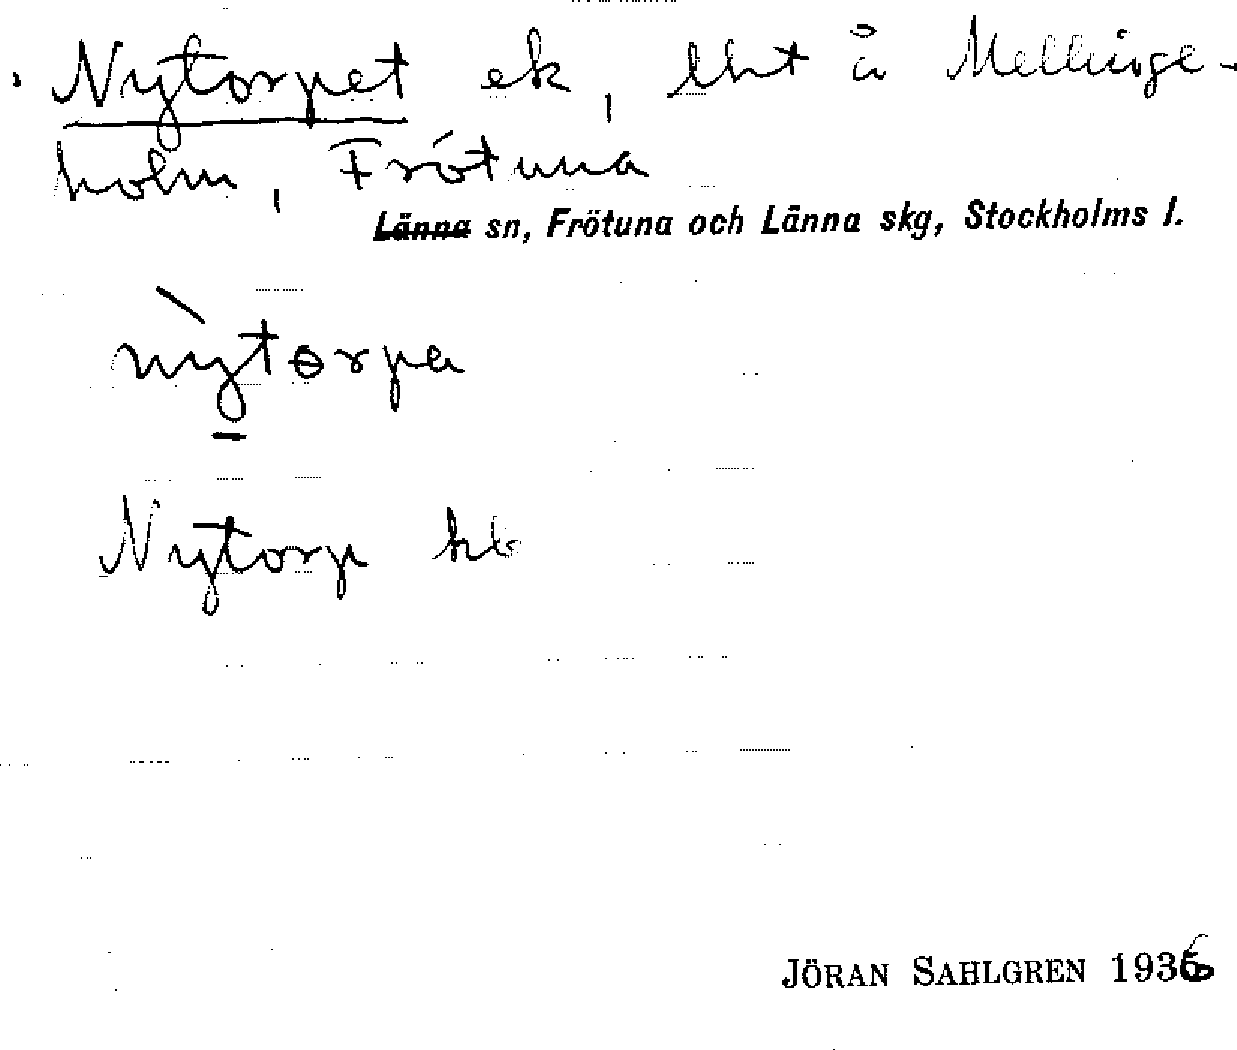 Nytorpet ek, lht å Mellinge-
holm, Frötuna
Länna sn, Frötuna och Länna skg, Stockholms l.
nytɵrpa
Nytorp hb
JÖRAN SAHLGREN 1936